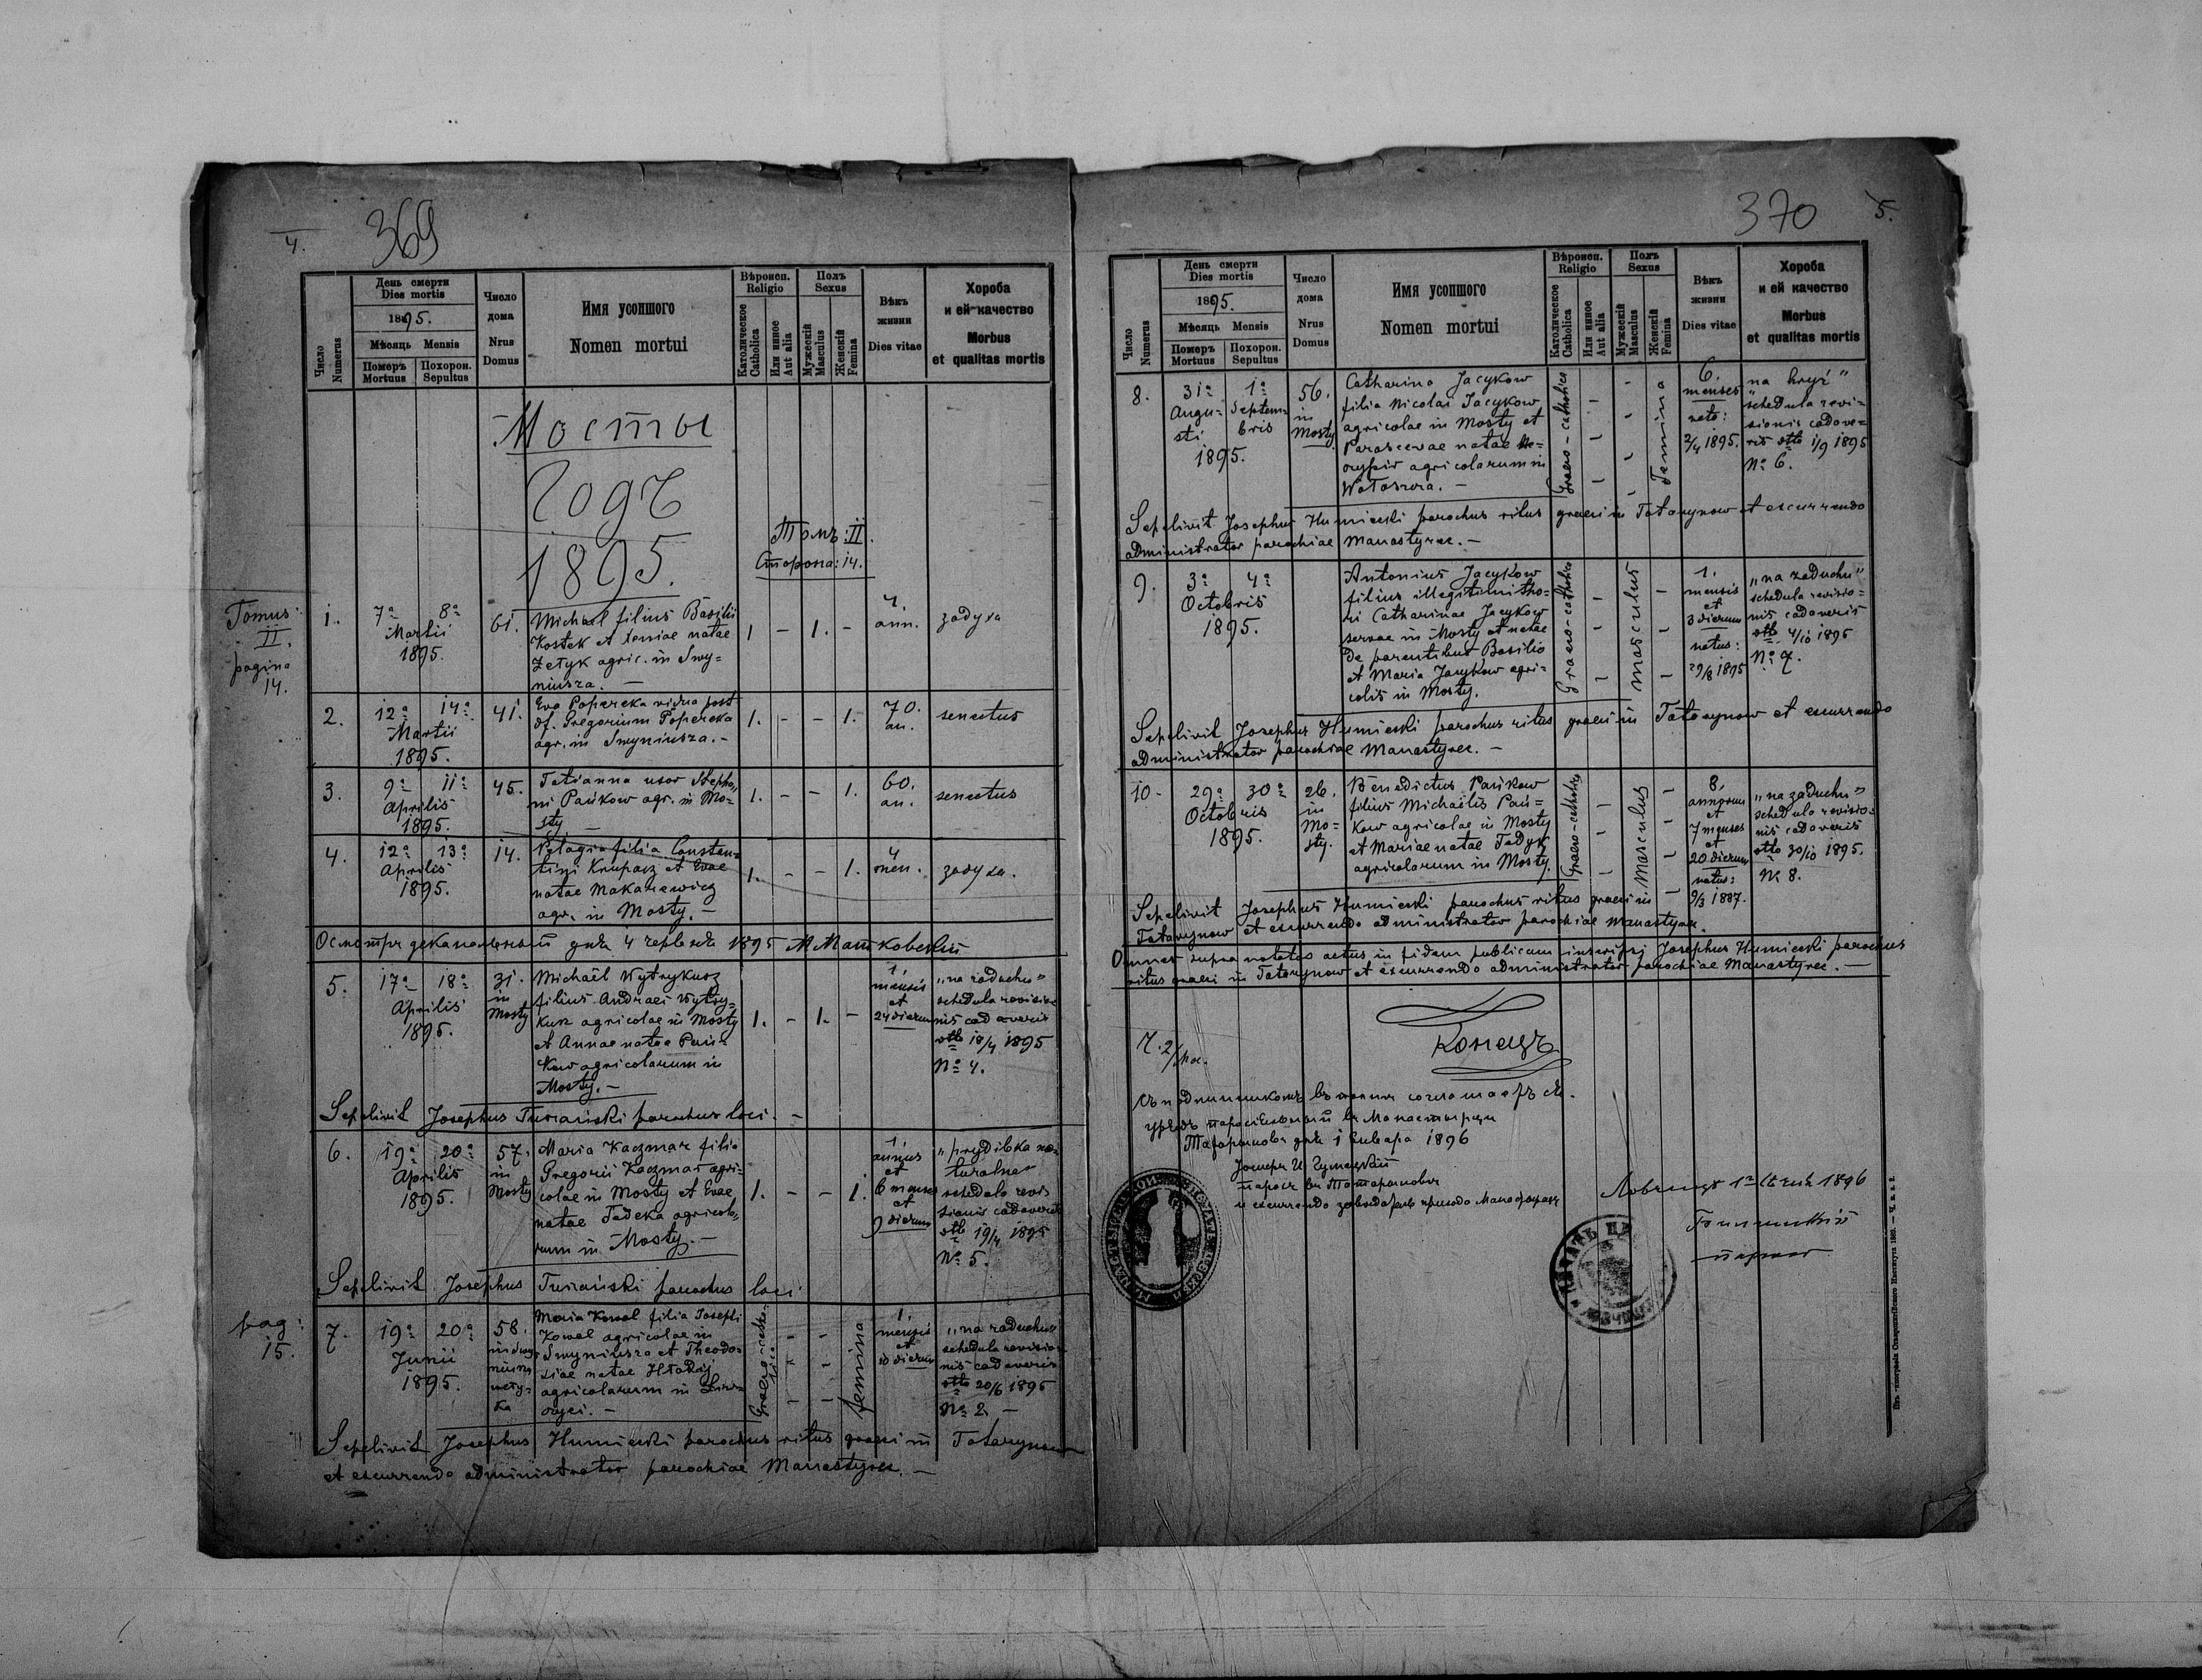 4.
369
Число
Numerus
День смерти
Dies mortis
1895.
Мѣсяць Mensis
Померъ
Mortuus
Похорон.
Sepultus
Число
дома
Nrus
Domus
Имя усопшого
Nomen mortui
Вѣроисп.
Religio
Католическое
Catholica
Или инное
Aut alia
Полъ
Sexus
Мужескій
Masculus
Женскій
Femina
Вѣкъ
жизни
Dies vitae
Хороба
и ей качество
Morbus
et qualitas mortis
Мосты
Годъ
1895.
Томъ: II.
Сторона: 14.
Tomus:
II.
pagina
14.
1.
7ᵃ 8ᵃ
Martii
1895.
61.
Michael filius Basilii
Kostek et Xeniae natae
Zetyk agric. in Smy=
niusza. —
1 - 1. -
4.
ann.
задуха
2.
12ᵃ 14ᵃ
Martii
1895.
41.
Eva Popereka vidua post
df. Gregorium Popereka
agr. in Smyniusza. —
1. - - 1.
70.
an.
senectus
3.
9ᵃ 11ᵃ
Aprilis
1895.
45.
Tatianna uxor Stepha=
ni Pańkow agr. in Mo=
sty —
1. - - 1.
60.
an.
senectus
4.
12ᵃ 13ᵃ
Aprilis
1895.
14.
Pelagia filia Constan=
tini Krupacz et Evae
natae Makarewicz
agr. in Mosty. —
1. - - 1.
4
men.
задуха.
5.
17ᵃ 18ᵃ
Aprilis
1895.
31.
in
Mosty
Michaël Wytrykusz
filius Andraei Wytry=
kusz agricolae in Mosty
et Annae natae Pań=
kow agricolarum in
Mosty. —
1. - 1. -
1.
mensis
et
24 dierum
„na zaduchu"
schedula revisio=
nis cadaveris
dtto 18/4 1895
No 4.
Sepelivit Josephus Turiański parochus loci. —
6.
19ᵃ 20ᵃ
Aprilis
1895.
57.
in
Mosty
Maria Kaczmar filia
Gregorii Kaczmar agri=
colae in Mosty et Evae
natae Fedeka agricola=
rum in Mosty. —
1. - - 1.
1.
annus
et
6 menses
et
9 dierum
schedula revi=
sionis cadaveris
dtto 19/4 1895
No 5.
Sepelivit Josephus Turiański parochus loci
pag:
15.
7.
19ᵃ 20ᵃ
Junii
1895.
58.
Maria Kowal filia Josephi
Kowal agricolae in
Smyniusza et Theodo=
siae natae Hładij
agricolarum in
Graeco-catholica
femina
1.
mensis
et
10 dierum
„na zaduchu"
schedula revisio=
nis cadaveris
dtto 20/6 1895
No 2. —
Sepelivit Josephus Humiecki parochus ritus graeci in Tatarynow
et excurrendo administrator parochiae Manastyrec. —
370
5.
Число
Numerus
День смерти
Dies mortis
1895.
Мѣсяць Mensis
Померъ
Mortuus
Похорон.
Sepultus
Число
дома
Nrus
Domus
Имя усопшого
Nomen mortui
Вѣроисп.
Religio
Католическое
Catholica
Или инное
Aut alia
Полъ
Sexus
Мужескій
Masculus
Женскій
Femina
Вѣкъ
жизни
Dies vitae
Хороба
и ей качество
Morbus
et qualitas mortis
8.
31ᵃ 1ᵃ
Augu= Septem=
sti bris
1895.
56.
in
Mosty
Catharina Jacykow
filia Nicolai Jacykow
agricolae in Mosty et
Parascevae natae
agricolarum in
Graeco-catholica
Femina
6.
menses
nata:
2/4 1895.
„na hryź"
schedula revi=
sionis cadave=
ris dtto 1/9 1895
No 6.
Sepelivit Josephus Humiecki parochus ritus graeci in Tatarynow et excurrendo
administrator parochiae Manastyrec. —
9.
3ᵃ 4ᵃ
Octobris
1895.
Antonius Jacykow
filius illegitimi tho=
ri Catharinae Jacykow
servae in Mosty et natae
de parentibus Basilio
et Maria Jacykow agri=
colis in Mosty.
Graeco-catholica
masculus
1.
mensis
et
3 dierum
natus:
29/8 1895
„na zaduchu"
schedula revisio=
nis cadaveris
dtto 4/10 1895
No 7.
Sepelivit Josephus Humiecki parochus ritus graeci in Tatarynow et excurrendo
administrator parochiae Manastyrec. —
10.
29ᵃ 30ᵃ
Octobris
1895.
26.
in
Mo=
sty.
Benedictus Pańkow
filius Michaëlis Pań=
kow agricolae in Mosty
et Mariae natae Fedyk
agricolarum in Mosty.
Graeco-catholica
Masculus
8.
annorum
et
7 menses
et
20 dierum
natus:
9/3 1887.
„na zaduchu"
schedula revisio=
nis cadaveris
dtto 30/10 1895.
No 8.
Sepelivit Josephus Humiecki parochus ritus graeci in
Tatarynow et excurrendo administrator parochiae Manastyrec.
Omnes supra notatos actus in fidem publicam inscripsi Josephus Humiecki parochus
ritus graeci in Tatarynow et excurrendo administrator parochiae Manastyrec. —
Конецъ
Ч. 2/
1896